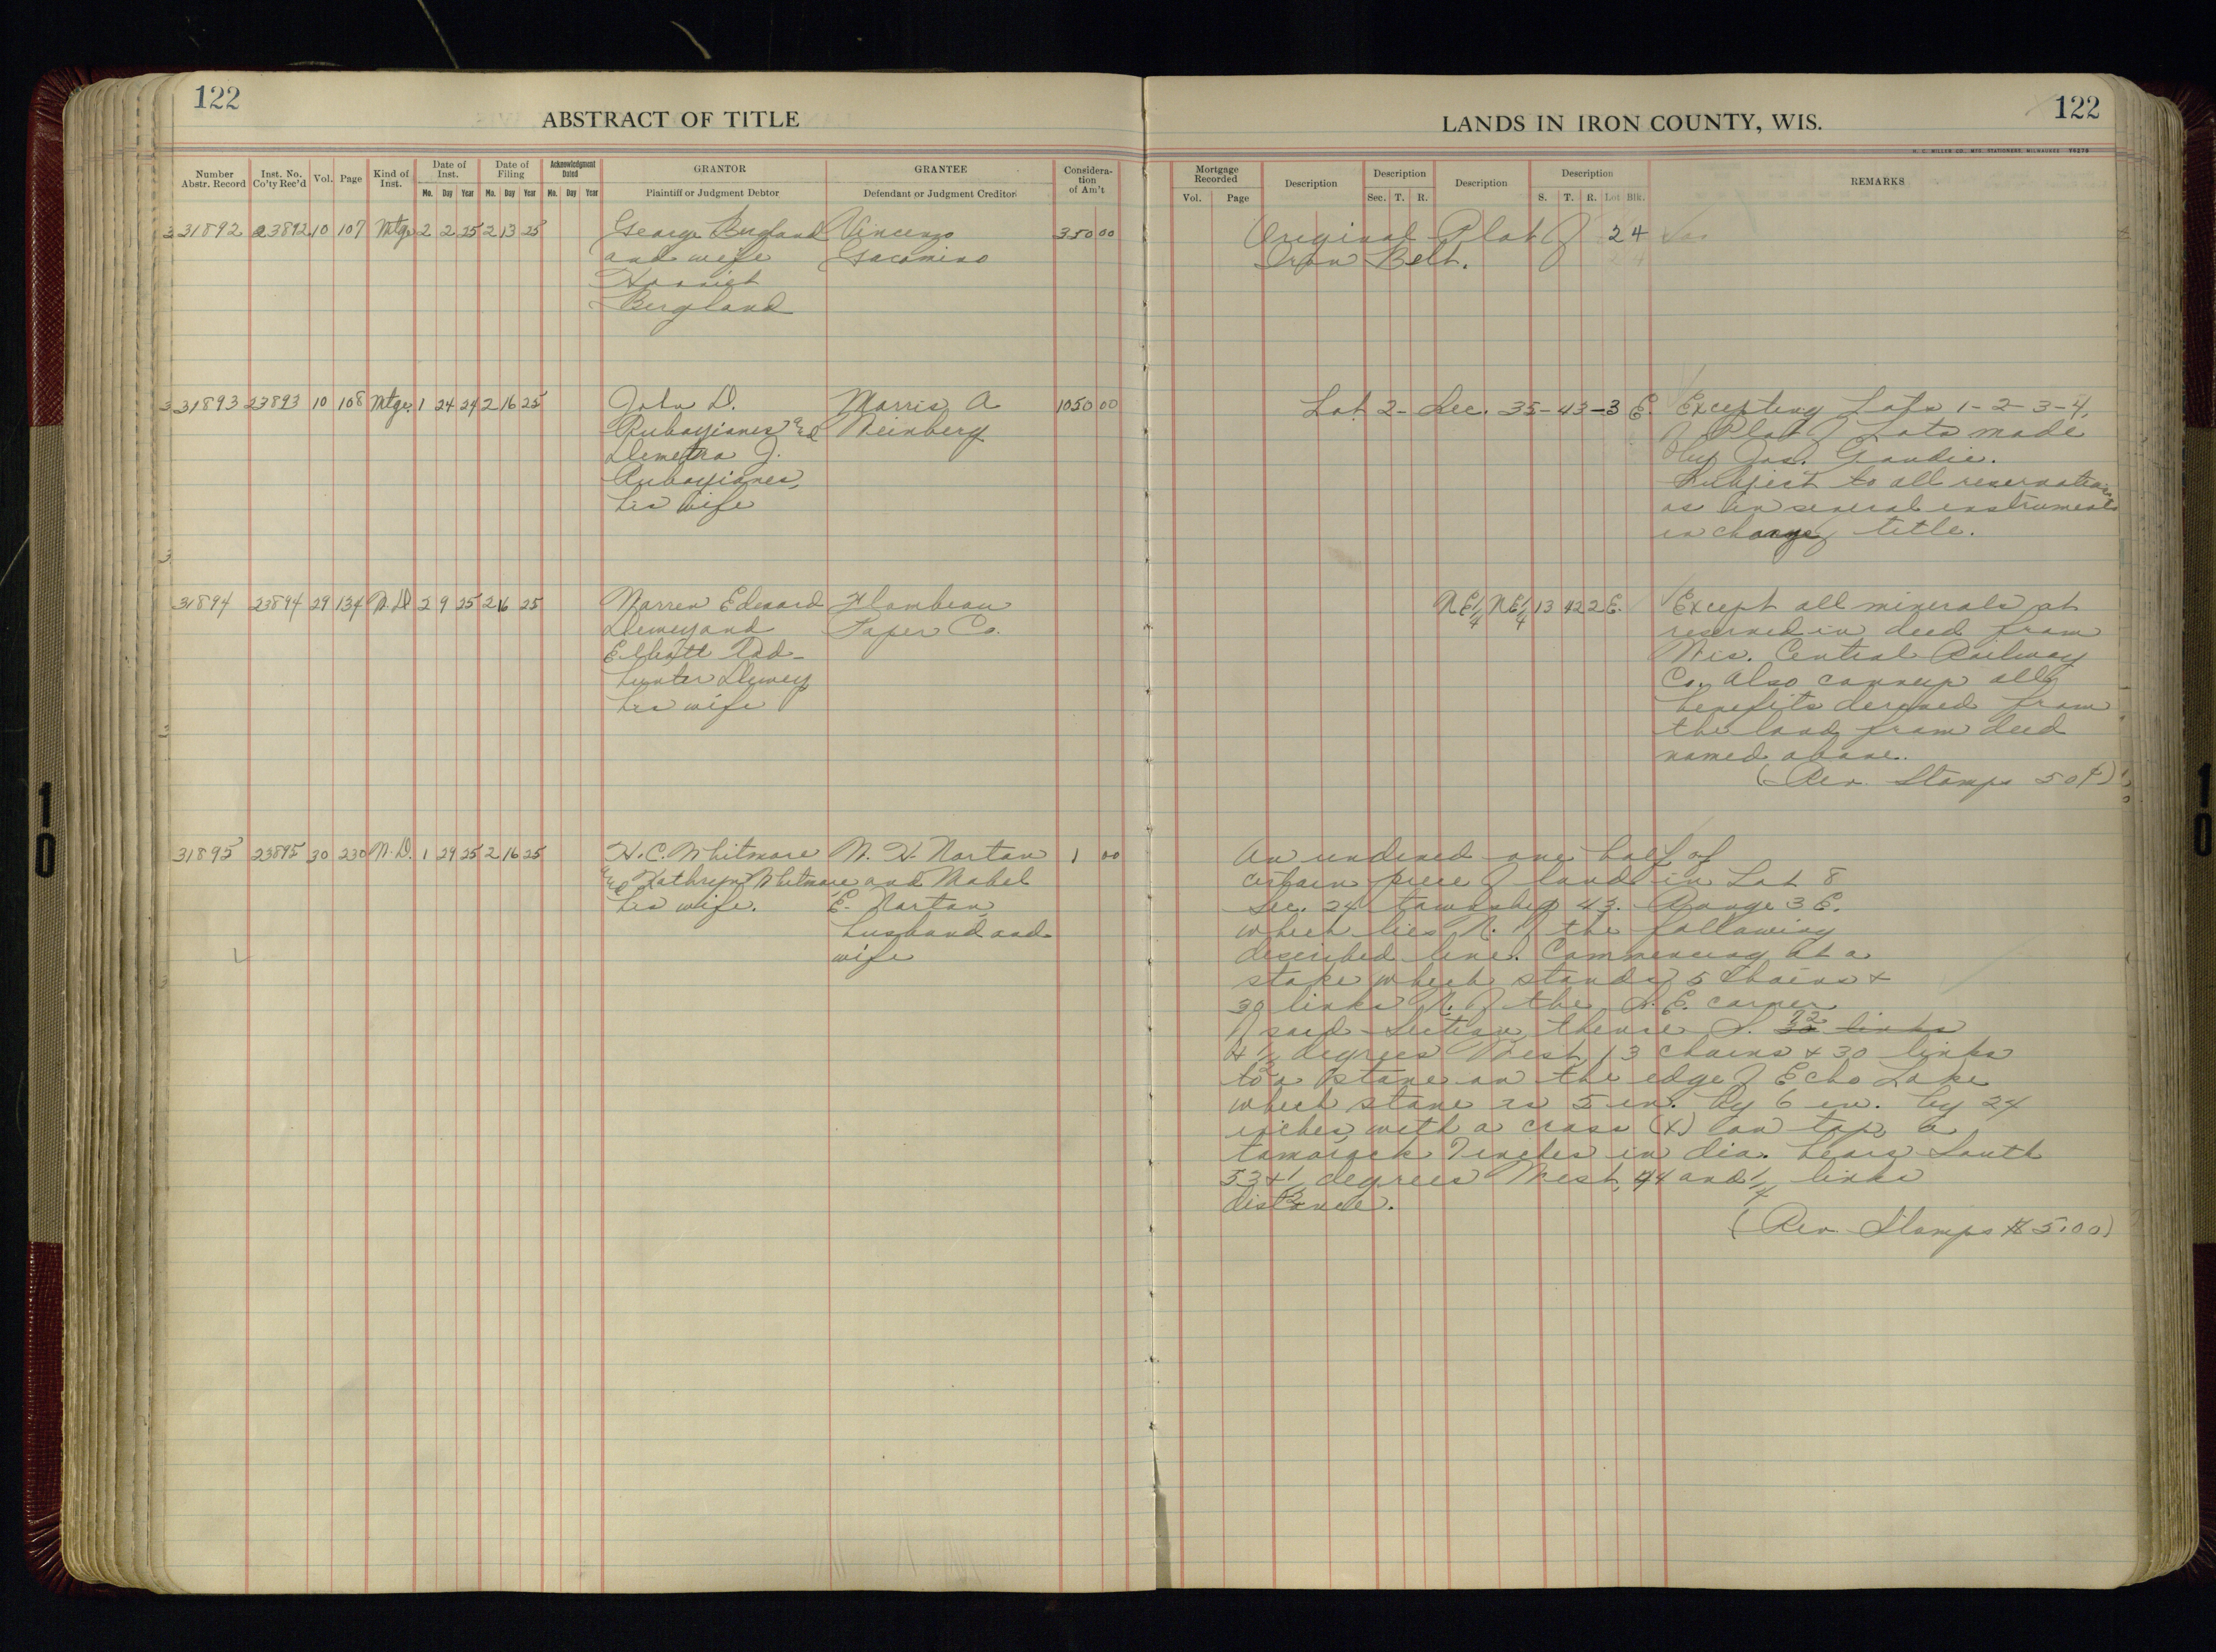 122
ABSTRACT OF TITLE
Number Abstr. Record Inst. No. Co'ty Rec'd Vol. Page Kind of Inst. Date of Inst. Mo. Day Year Date of Filing Mo. Day Year Acknowledgment Dated Mo. Day Year GRANTOR Plaintiff or Judgment Debtor GRANTEE Defendant or Judgment Creditor Considera-tion of Am't
31892 23892 10 107 Mtge 2 2 25 2 13 25 George Bergland Vincenzo 350 00
and wife Giacomino
Harriet
Bergland
31893 23893 10 108 Mtge. 1 24 24 2 16 25 John D. Morris A 1050 00
Rubayianes and Weinberg
Demetra J.
Rubayianes,
his wife
31894 23894 29 134 W.D. 2 9 25 2 16 25 Warren Edward Flambeau
Dewey and Paper Co.
Elliott Tod-
hunter Dewey
his wife
31895 23895 30 230 W.D. 1 29 25 2 16 25 H.C. Whitmore W. H. Norton 1 00
and Kathryn Whitmore and Mabel
his wife. E. Norton,
husband and
wife
LANDS IN IRON COUNTY, WIS.
122
H. C. MILLER CO., MFG. STATIONERS, MILWAUKEE
Mortgage Recorded Vol. Page Description Description Sec. T. R. Description Description S. T. R. Lot Blk. REMARKS
Original Plat of 2 4
Iron Belt.
Lot 2- Sec. 35-43-3 E. Excepting Lots 1-2-3-4,
of Plat of Lots made
by Jas. Goudie.
Subject to all reservations
as in several instruments
in chain of title.
NE1/4 NE1/4 13 42 2 E. Except all minerals as
reserved in deed from
Wis. Central Railway
Co. Also conveys all
benefits derived from
the land from deed
named above.
(Rev. Stamps 50¢)
An undived one half of
certain piece of land in Lot 8
Sec. 24 township 43. Range 3 E.
which lies N. of the following
described line. Commencing at a
stake which stands 5 chains &
30 links N. of the S. E. corner
of said Section, thence S. 72 links
4 1/2 degrees West, 13 chains & 30 links
to a stone on the edge of Echo Lake
which stone is 5 in. by 6 in. by 24
inches with a cross (x) on top a
tamarack 7 inches in dia. bears South
53 & 1/2 degrees West, 44 and 1/4 links
distance.
(Rev. Stamps $5.00)
10
10